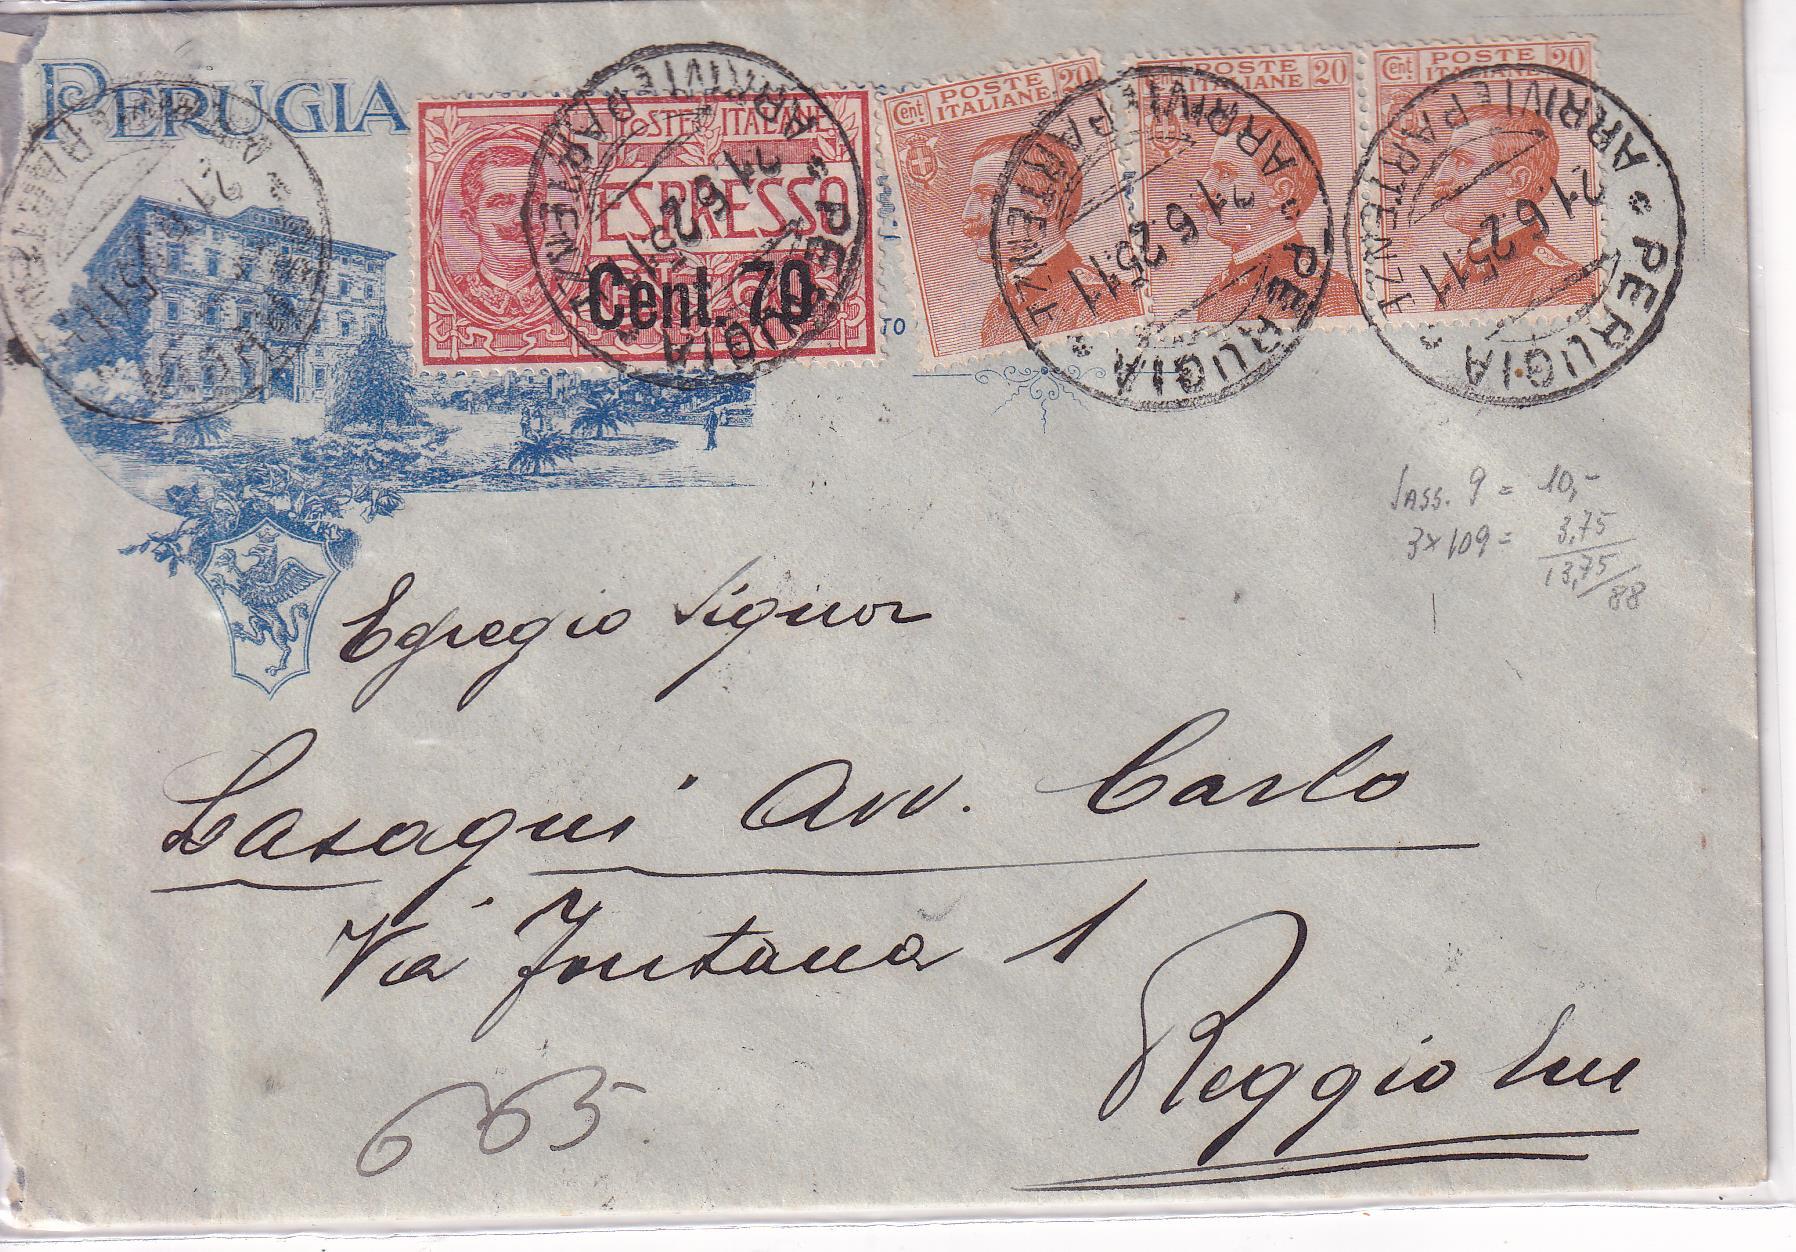 PERUGIA
POSTE ITALIANE
ESPRESSO
Cent. 70
Cent POSTE ITALIANE 20
Cent POSTE ITALIANE 20
Cent POSTE ITALIANE 20
PERUGIA
ARRIVI E PARTENZE
21.6.25 11
PERUGIA
ARRIVI E PARTENZE
21.6.25 11
PERUGIA
ARRIVI E PARTENZE
21.6.25 11
TO
Sass. 9 = 10,-
3x109 = 3,75
13,75/88
Egregio Signor
Lasagni Avv. Carlo
Via Fontana 1
Reggio Em
665